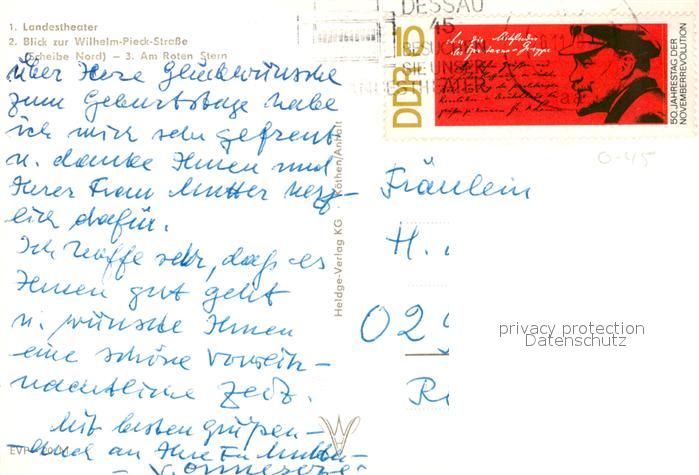 1. Landestheater
2. Blick zur Wilhelm-Pieck-Straße
(Scheibe Nord) – 3. Am Roten Stern
über Ihre Glückwünsche
zum Geburtstage habe
ich mich sehr gefreut
u. danke Ihnen und
Ihrer Frau Mutter herz-
lich dafür.
Ich hoffe sehr, daß es
Ihnen gut geht
u. wünsche Ihnen
eine schöne vorweih-
nachtliche Zeit.
Mit besten Grüßen –
auch an Ihre Fr. Mutter –
EVP
Heldge-Verlag KG Köthen/Anhalt
DESSAU
45
BESUCHEN
SIE UNSER
LANDESTHEATER
DDR 10
An die Mitglieder
der Spartacus-Gruppe
50. JAHRESTAG DER
NOVEMBERREVOLUTION
0-45
Fräulein
H.
02
R
privacy protection
Datenschutz